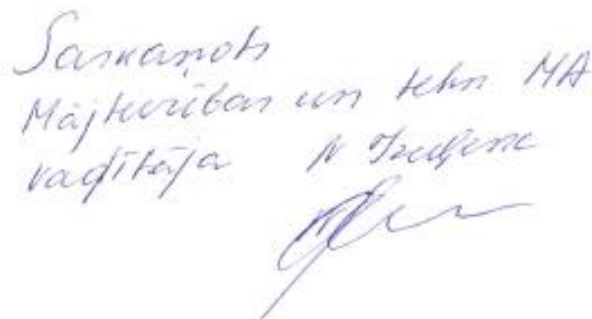 Saskaņots
Mājturības un tehn MA
vadītāja N